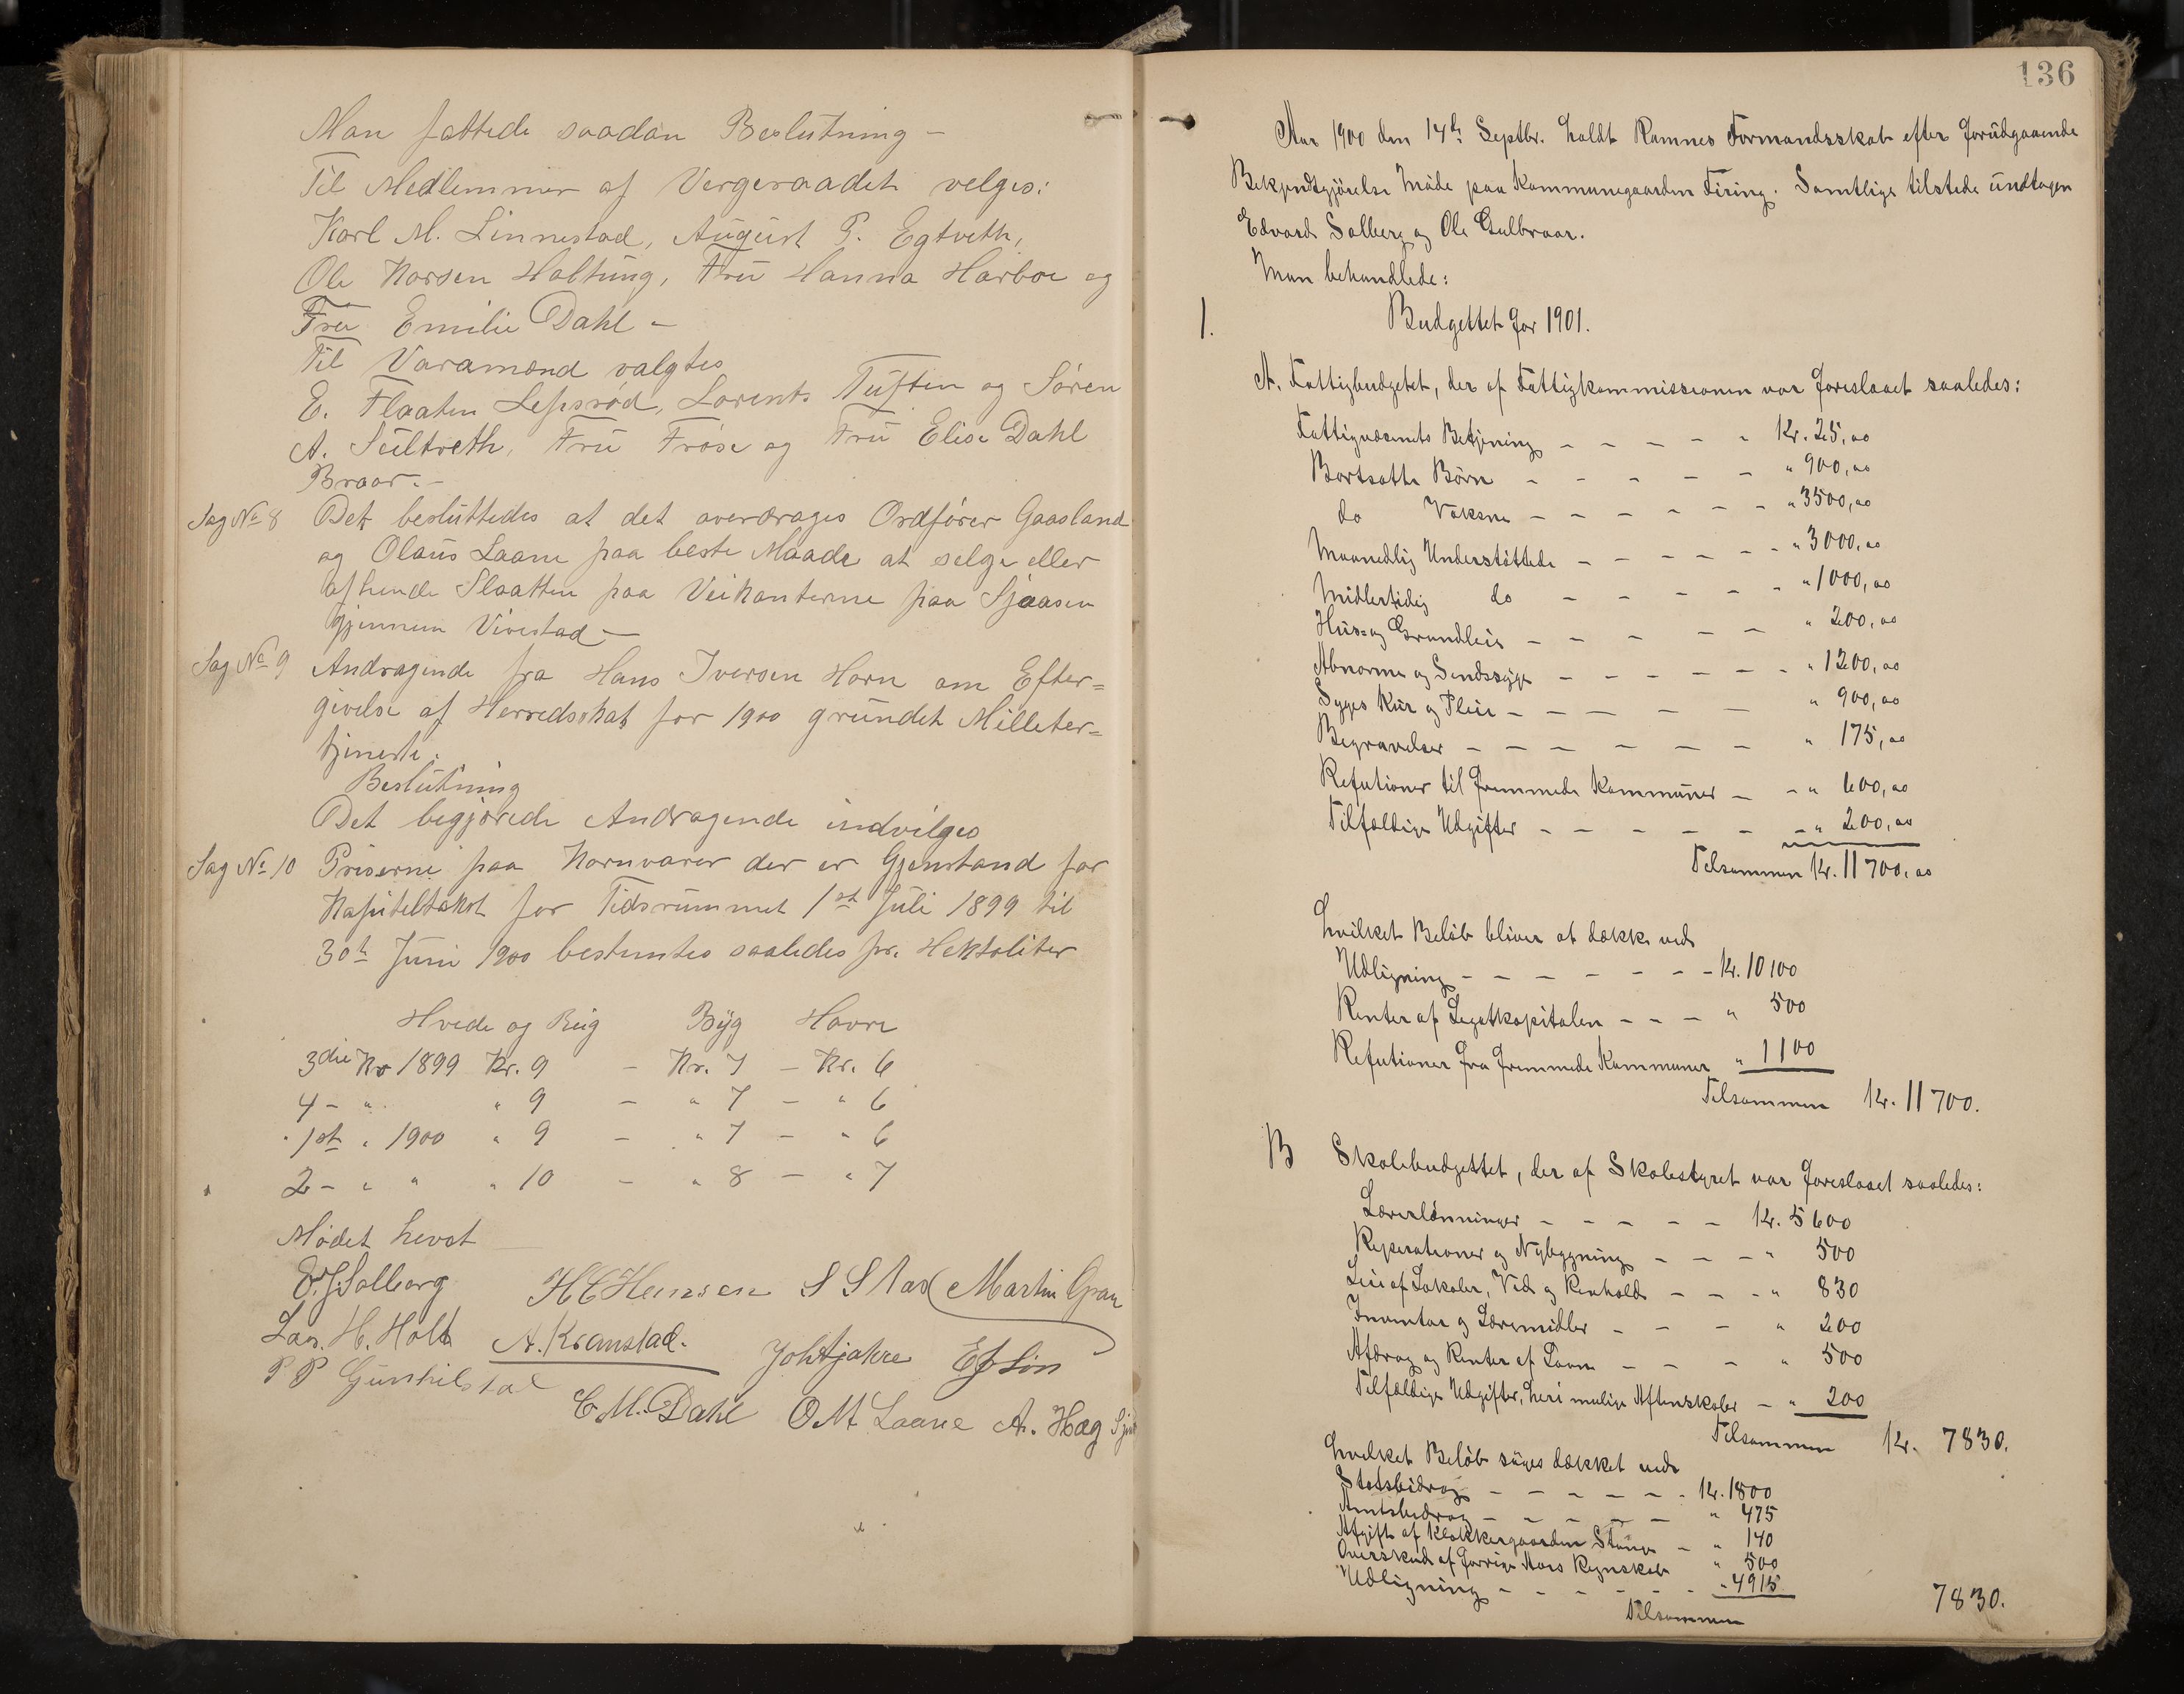 Man fattede saadan Beslutning –
Til Medlemmer af Vergeraadet velges:
Karl M. Linnestad, August P. Egtveth,
Ole Norsen Holtung, Fru Hanna Harboe og
Fru Emilie Dahl –
Til Varamænd valgtes
E. Flaaten Lepsrød, Lorents Tuften og Søren
A. Sültveth, Fru Frøse og Fru Elise Dahl
Braar. –
Sag No 8 Det besluttedes at det overdrages Ordfører Gaasland
og Olaus Laane paa beste Maade at selge eller
afhende Slaatten paa Veikanterne paa Sjaasen
gjennem Vivestad –
Sag No 9 Andragende fra Hans Iversen Horn om Efter=
givelse af Herredsskat for 1900 grundet Milleter=
tjeneste.
Beslutning
Det begjørede Andragende indvilges
Sag No 10 Priserne paa Kornvarer der er Gjenstand for
Kapiteltakst for Tidsrummet 1st Juli 1899 til
30te Juni 1900 bestemtes saaledes pr. Hektoliter
Hvede og Rug Byg Havre
3die Kv 1899 Kr. 9 – Kr. 7 – Kr. 6
4 – " " 9 – " 7 – " 6
1st " 1900 " 9 – " 7 – " 6
2 – " " " 10 – " 8 – " 7
Mødet hevet
E. J. Solberg H C Hansen S Stad Martin Gran
Lar. H. Holt A. Kranstad. Joh Hjakre E J Linn
P P Gunhilstad
C. M. Dahl O M Laane A. Hæg
136
Aar 1900 den 14de Septbr. holdt Ramnes Formandsskab efter forudgaaende
Bekjendtgjørelse Møde paa Kommunegaarden Firing. Samtlige tilstede undtagen
Edvard Solberg og Ole Gulbraar.
Man behandlede:
1. Budgettet for 1901.
A. Fattigbudgetet, der af Fattigkommissionen var foreslaaet saaledes:
Fattigvæsenets Betjening – – – – – Kr. 25,00
Bortsatte Børn – – – – – " 900,00
do Voksne – – – – – – – " 3500,00
Maanedlig Understøttede – – – – – – " 3000,00
Midlertidig do – – – – – – " 1000,00
Hus- og Grundleie – – – – – " 200,00
Abnorme og Sindssyge – – – – – – – " 1200,00
Syges Kur og Pleie – – – – – – " 900,00
Begravelser – – – – – – – " 175,00
Refutioner til fremmede Kommuner – – " 600,00
Tilfældige Udgifter – – – – – – – " 200,00
Tilsammen Kr. 11700,00
hvilket Beløb bliver at dække ved
Udligning – – – – – – – Kr. 10100
Renter af Legatkapitalen – – – " 500
Refutioner fra fremmede Kommuner " 1100
Tilsammen Kr. 11700.
B Skolebudgettet, der af Skolestyret var foreslaaet saaledes:
Lærerlønninger – – – – – Kr. 5600
Reperationer og Nybygning – – – " 500
Leie af Lokaler, Ved og Renhold – – – " 830
Inventar og Læremidler – – – " 200
Afdrag og Renter af Laan – – – " 500
Tilfældige Udgifter, heri mulige Aftenskoler – " 200
Tilsammen Kr. 7830.
hvilket Beløb søges dækket ved
Statsbidrag – – – – – – – Kr. 1800
Amtsbidrag – – – – – " 475
Afgift af Klokkergaarden Stange – " 140
Overskud af forrige Aars Regnskab " 500
Udligning – – – – – – " 4915
Tilsammen 7830.